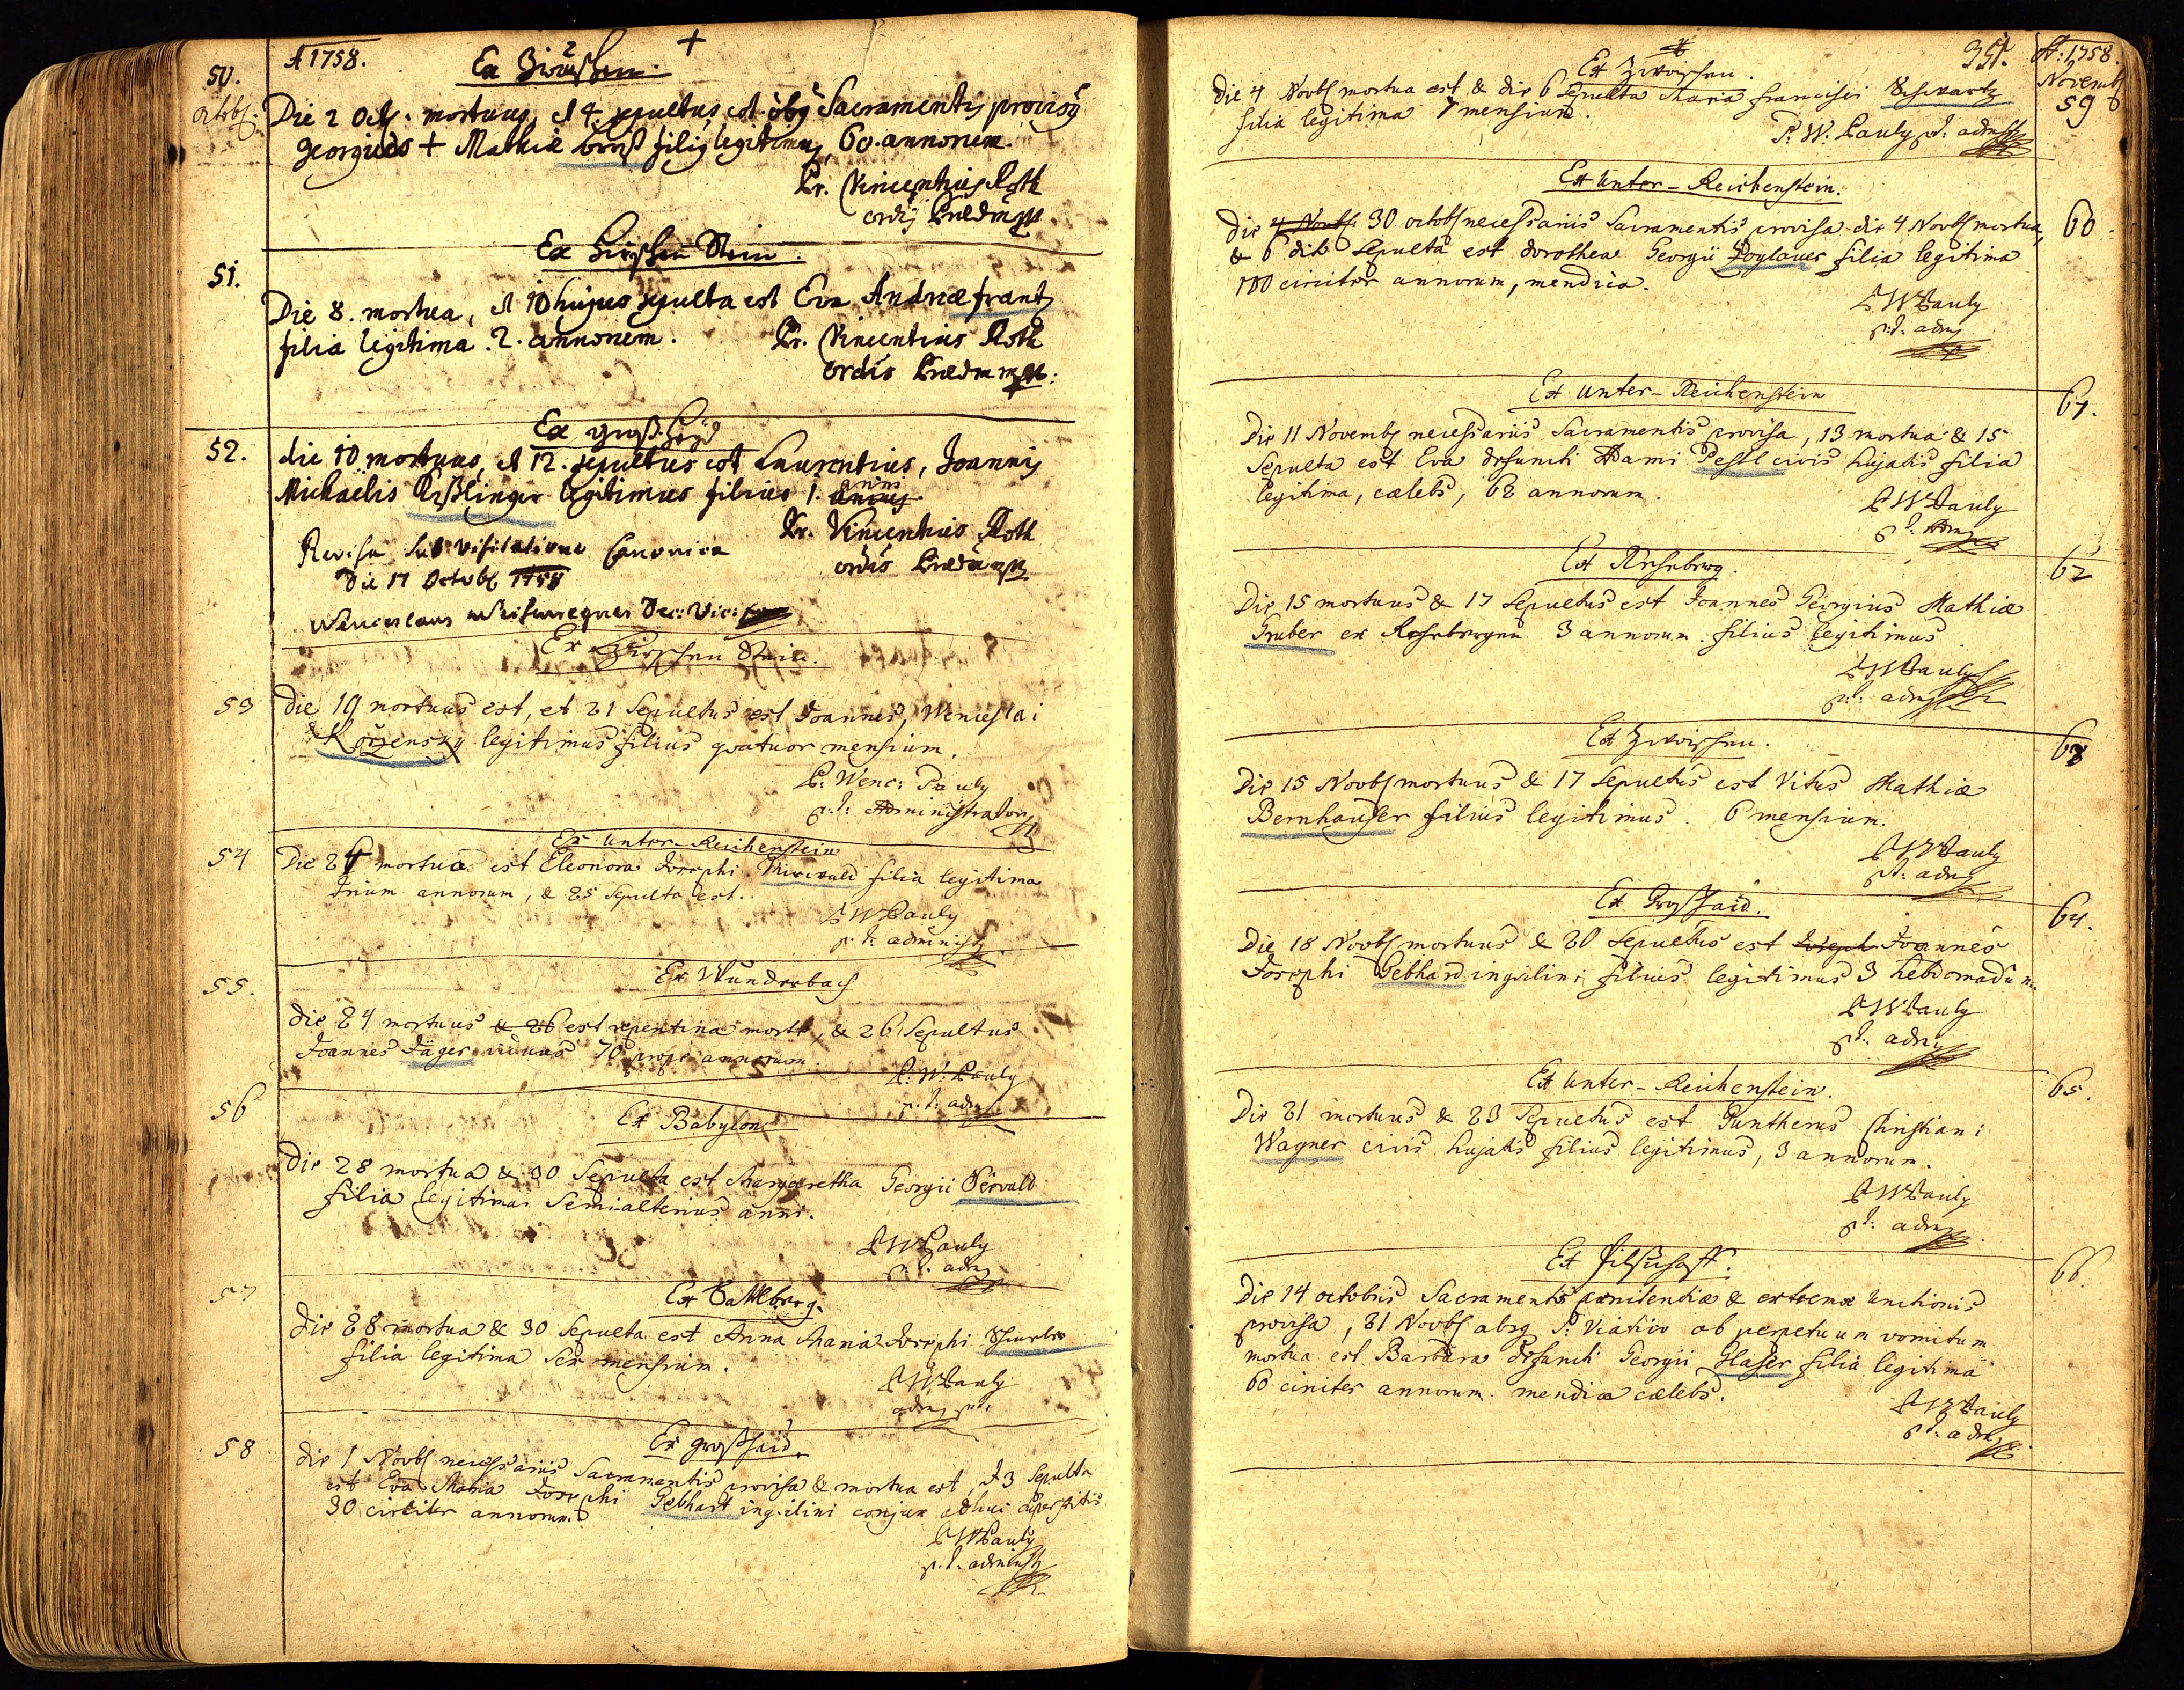 A 1758.
50.
Octob.
Ex Zwischen.
Die 2 Octb. mortuus, et 4. sepultus est oibg Sacramentis provisg
Georgius + Mathiæ filig legitimg 60. annorum.
Pr. Vincentius Roth
ordis Prædm
51.
Ex Hirschen Stein.
Die 8. mortua, et 10 hujus sepulta est Eva Andreæ frantz
filia legitima 2. annorum.
Pr. Vincentius Roth
ordis Prædm
52.
Ex groß Hayd
die 10 mortuus, et 12. sepultus est Laurentius, Joannis
Michaelis legitimus filius 1. anni
Pr. Vincentius Roth
ordis Prædm
Revisa sub visitatione Canonica
Die 17 Octob 1758
Wenceslaus Dec: Vic:
Ex Hirschen Stein.
53
Die 19 mortuus est, et 21 Sepultus est Joannes, Wenceslai
Kořzensky legitimus filius quatuor mensium.
P. Wenc: Pauly
p. t: Administrator
54
Ex Unter-Reichenstein
Die 24 mortua est Eleonora Josephi filia legitima
trium annorum, & 25 sepulta est.
P W Pauly
p. t: administ
55.
Ex Wunderbach
Die 24 mortuus & 26 est repentina morte, & 26 Sepultus
Joannes Jäger viduus 70 prope annorum.
P: W: Pauly
p. t: adm
56
Ex Babylon
Die 28 mortua & 30 Sepulta est Margaretha Georgii
filia legitima Semialterius anni.
P W Pauly
p. t. adm
57
Ex Sattlberg.
Die 28 mortua & 30 Sepulta est Anna Maria Josephi
filia legitima Sex mensium.
P W Pauly
adm p. t.
58
Ex großhaid
Die 1 Novb necessariis Sacramentis provisa & mortua est, et 3 Sepulta
est Eva Maria Josephi Gebhart inquilini conjux adhuc superstitis
30 circiter annorum
P W Pauly
p. t. administ
351.
A: 1758.
Novemb
59
Ex Zwischen.
Die 4 Novb mortua est & die 6 Sepulta Maria francisci Schwartz
filia legitima 7 mensium.
P. W. Pauly p. t. adm
60
Ex Unter-Reichenstein.
Die 4 Novb. 30 octob necessariis Sacramentis provisa die 4 Novb mortua,
& 6 Sepulta est Dorothea Georgii filia legitima
100 circiter annorum, mendica.
P W Pauly
p. t. adm
61.
Ex Unter-Reichenstein
Die 11 Novemb necessariis Sacramentis provisa, 13 mortua & 15
Sepulta est Eva defuncti Adami civis hujatis filia
legitima, cælebs, 62 annorum.
P W Pauly
p. t. Adm
62
Ex Reheberg.
Die 15 mortuus & 17 Sepultus est Joannes Georgius Mathiæ
Gruber ex 3 annorum filius legitimus
P W Pauly
p. t. adm
63
Ex Zwischen.
Die 15 Novb mortuus & 17 Sepultus est Vitus Mathiæ
Bernhauser filius legitimus. 6 mensium.
P W Pauly
p. t. adm
64.
Ex Großhaid.
Die 18 Novb mortuus & 20 Sepultus est Joseph Joannes
Josephi Gebhard inquilini filius legitimus 3 hebdomadum.
P W Pauly
p. t. adm
65.
Ex Unter-Reichenstein.
Die 21 mortuus & 23 Sepultus est Guntherus Christiani
Wagner civis hujatis filius legitimus, 3 annorum.
P W Pauly
p. t: adm
66.
Ex
Die 14 octobris Sacramentis pœnitentiæ & extremæ Unctionis
provisa, 21 Novb absq S: Viatico ob perpetuum vomitum
mortua est Barbara defuncti Georgii Glaser filia legitima
60 circiter annorum. mendica cælebs.
P W Pauly
p. t. adm